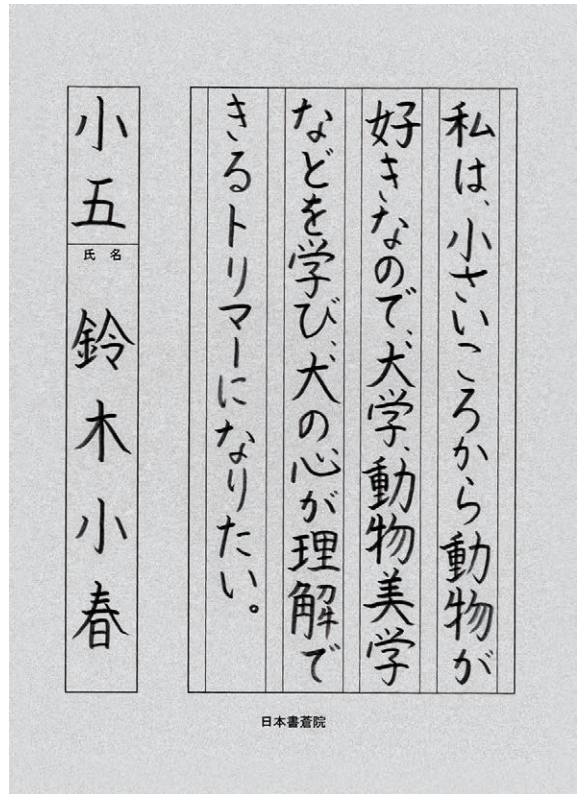 私は、小さいころから動物が
好きなので、犬学、動物美学
などを学び、犬の心が理解で
きるトリマーになりたい。
小五
氏名
鈴木小春
日本書蒼院